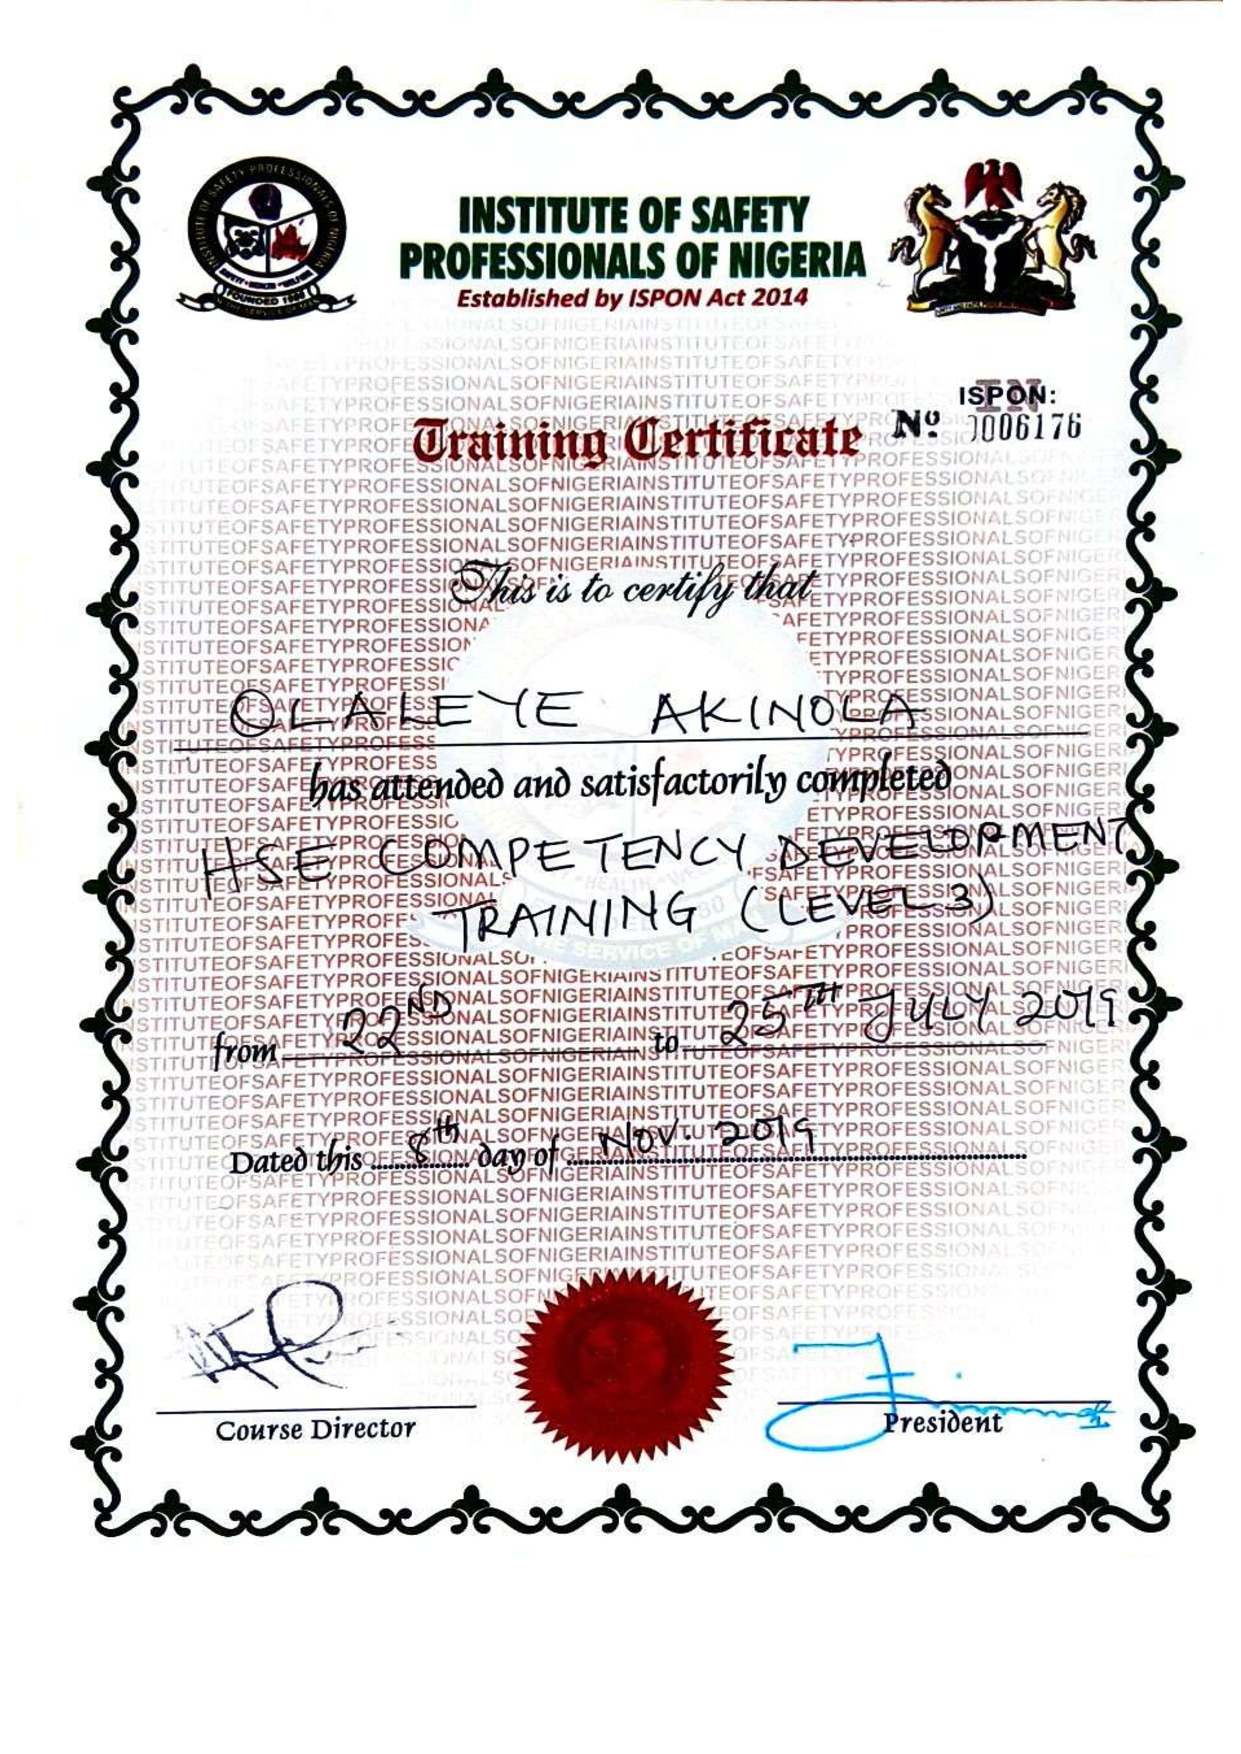 INSTITUTE OF SAFETY PROFESSIONALS OF NIGERIA
SAFETY • HEALTH • WELFARE
FOUNDED 1980
IN THE SERVICE OF MAN
INSTITUTE OF SAFETY
PROFESSIONALS OF NIGERIA
Established by ISPON Act 2014
ISPON:
IN
Training Certificate
Nº 0006176
This is to certify that
OLALEYE AKINOLA
has attended and satisfactorily completed
HSE COMPETENCY DEVELOPMENT
TRAINING (LEVEL 3)
from 22ND to 25TH JULY 2019
Dated this 8th day of NOV. 2019
Course Director
President